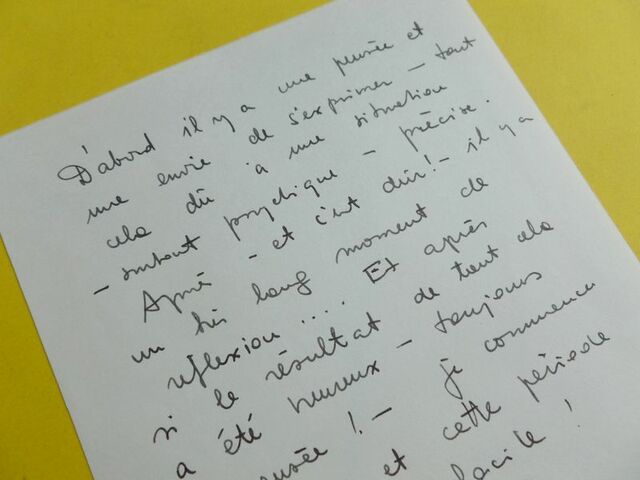 D'abord il y a une pensée et
une envie de s'exprimer – tout
cela dû à une situation
– surtout psychique – précise.
Après – et c'est dur! – il y a
un très long moment de
réflexion .... Et après
si le résultat de tout cela
a été heureux – toujours
! – je commence
et cette période
facile !